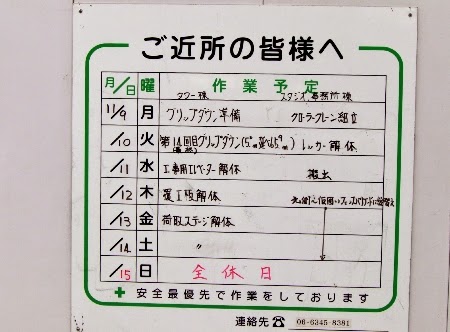 ご近所の皆様へ
月/日 曜 作業予定
タワー棟 スタジオ、事務所棟
11/9 月 グリップダウン準備 クローラークレーン組立
/10 火 第14回目グリップダウン レッカー解体
/11 水 工事用エレベーター解体 搬出
/12 木 覆工板解体
/13 金 荷取ステージ解体
/14 土 〃
/15 日 全休日
安全最優先で作業をしております
連絡先☎ 06-6345-8381